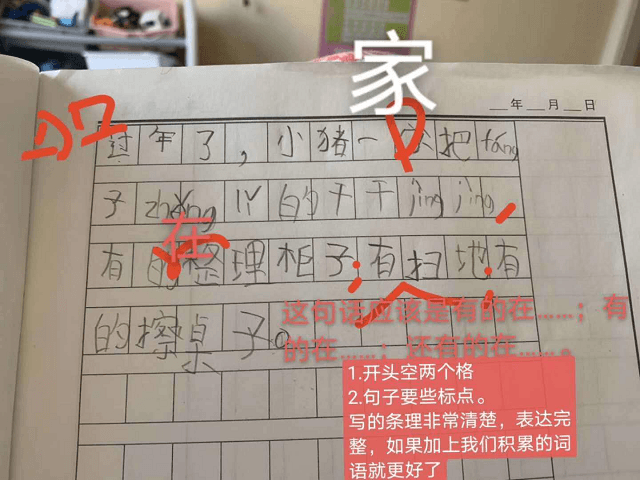 家
年 月 日
过年了，小猪一家把fáng
子zhěng 的干干jìng jìng，
在
有的整理柜子；有扫地；有
的擦桌子。
这句话应该是有的在……；有
的在……；还有的在……。
1.开头空两个格
2.句子要些标点。
写的条理非常清楚，表达完
整，如果加上我们积累的词
语就更好了